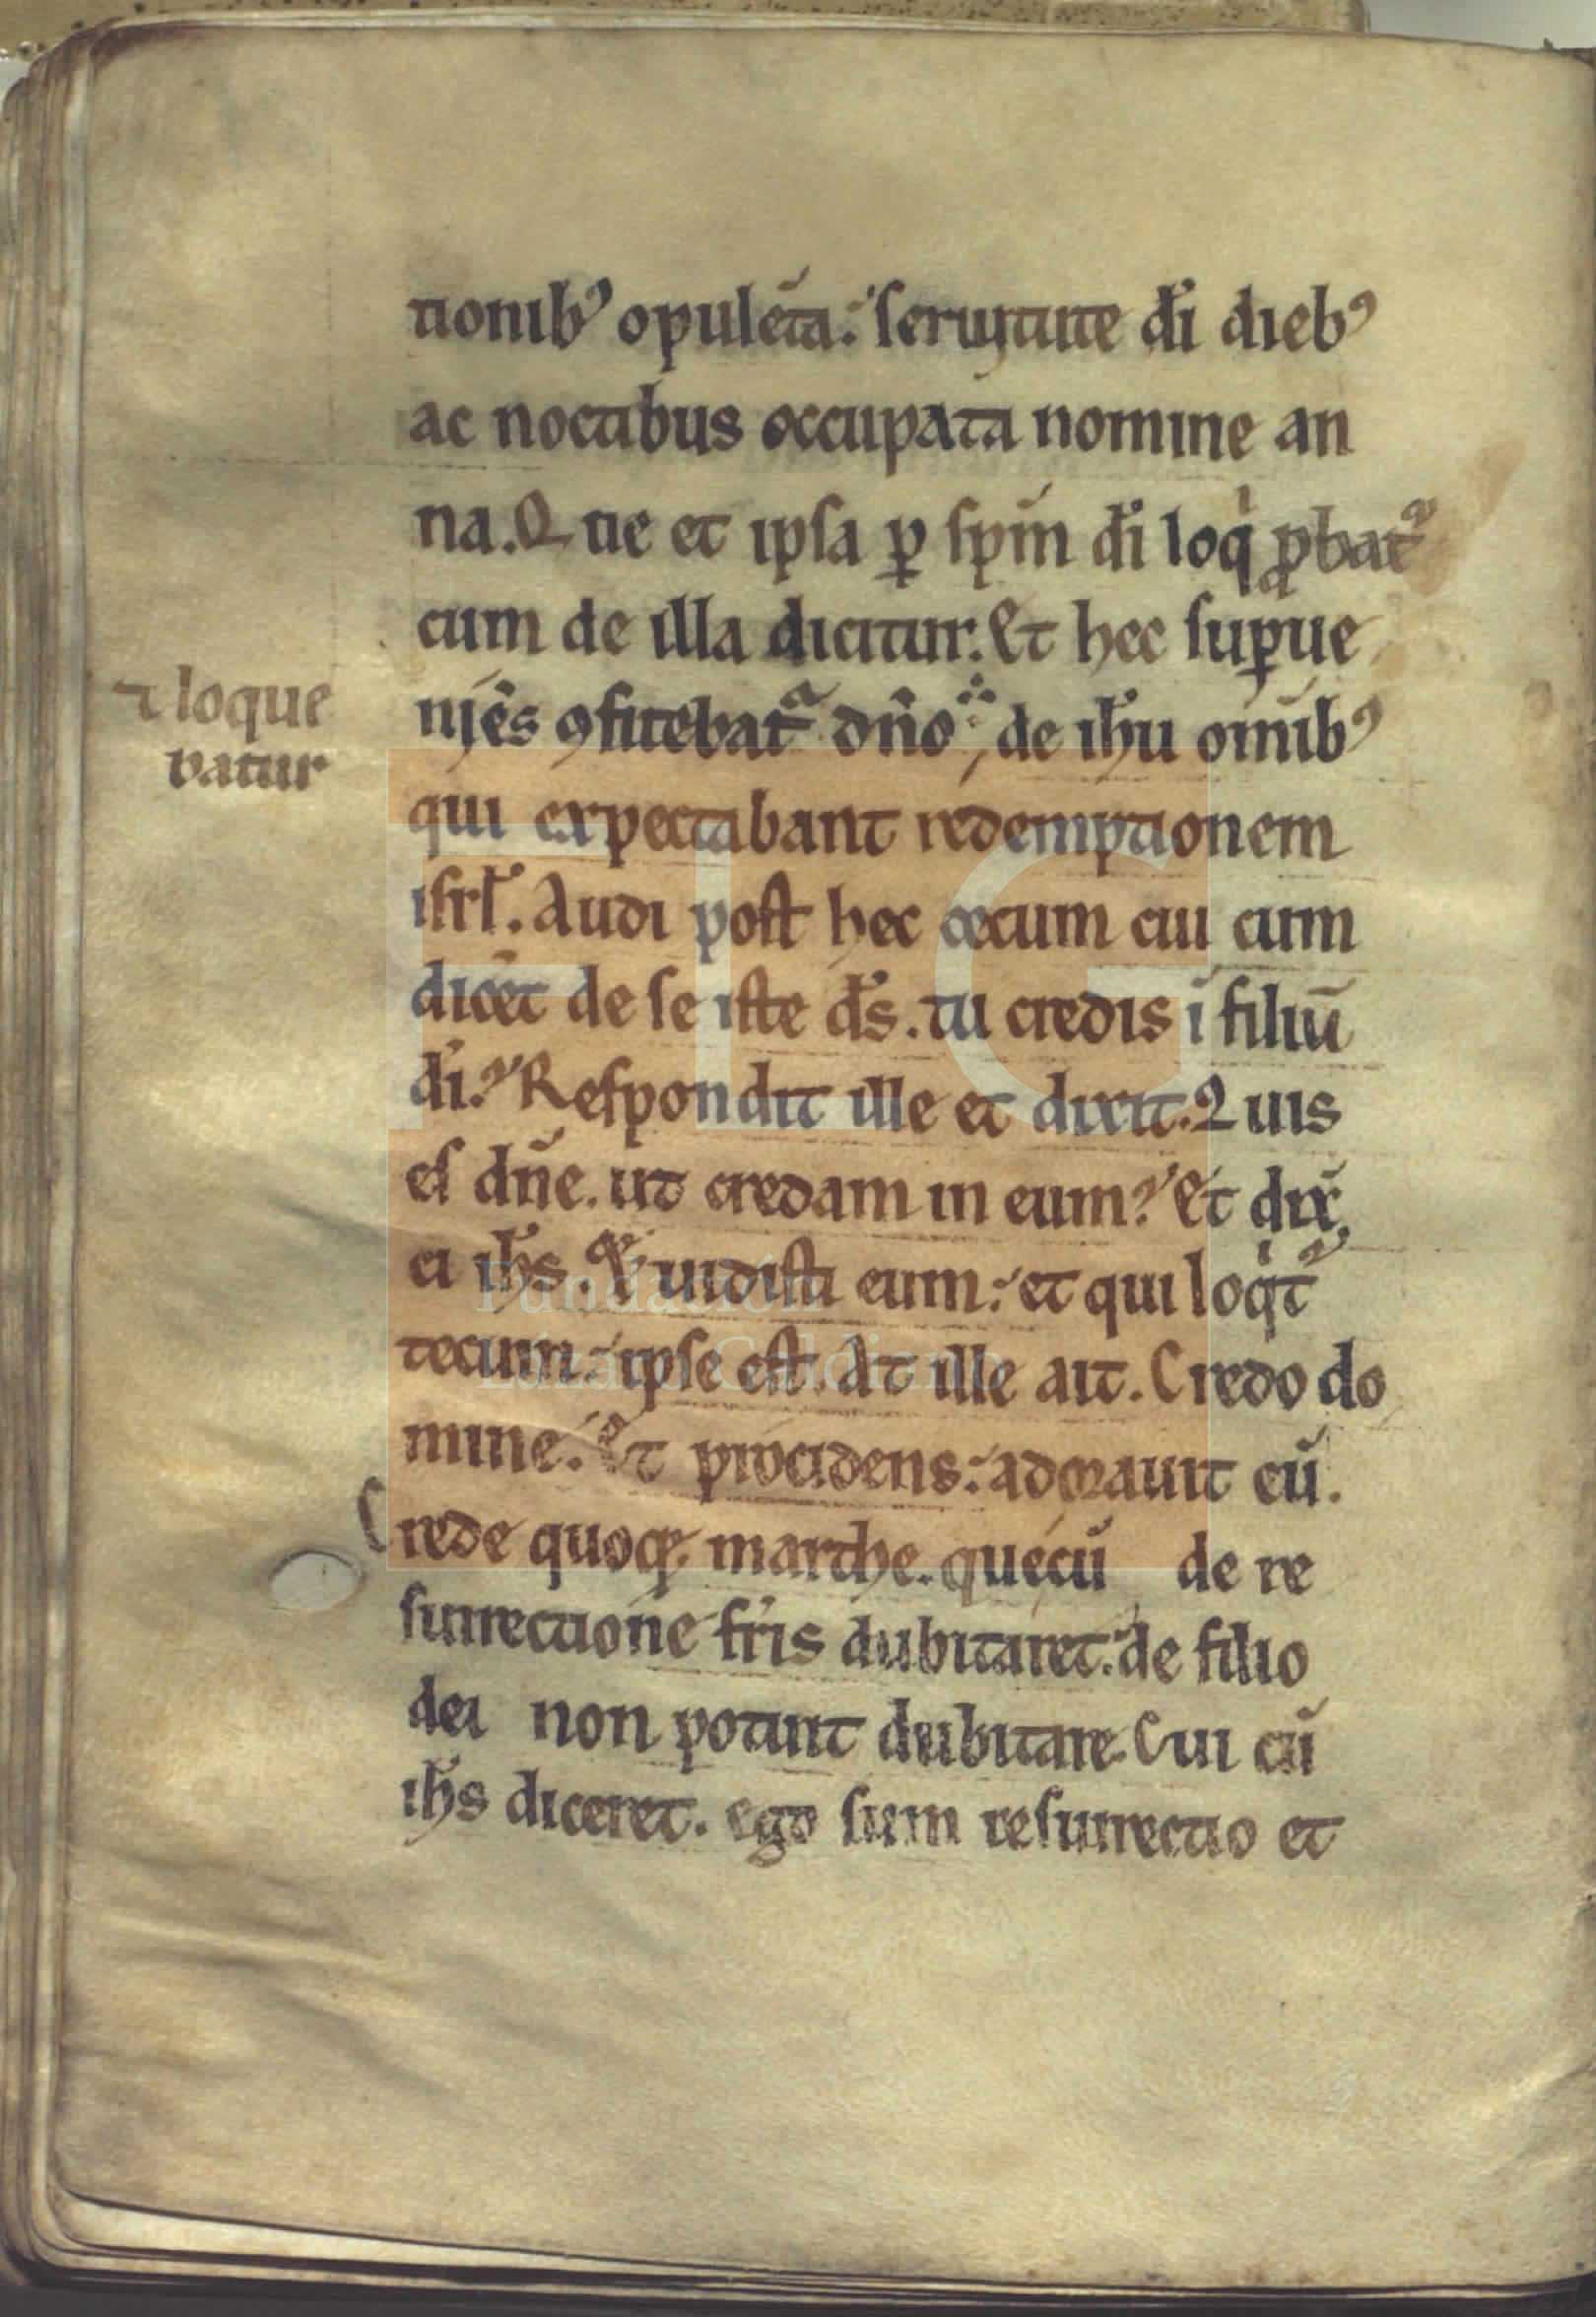 tionibꝰ opulēta. seruitute dī dieb⁹
ac noctibus occupata nomine an
na. Que et ipsa ꝑ sp̄m dī loqͥ ꝓbat᷑
cum de illa dicitur. Et hec suꝑue
niēs ꝯfitebat᷑ dn̄o de ih̄u om̄ib⁹
⁊ loque
batur
qui expectabant redemptionem
isrl̄. Audi post hec cecum cui cum
dicēt de se iste d̄s. tu credis ī filiū
dī? Respondit ille et dixit. Quis
es dn̄e. ut credam in eum? Et dix̄
ei ih̄s. Et uidisti eum. et qui loqͥt᷑
tecum. ipse est. At ille ait. Credo do
mine. Et procidens. adorauit eū.
Crede quoqꝫ marthe. que cū de re
surrectione fr̄is dubitaret. de filio
dei non potuit dubitare. Cui cū
ih̄s diceret. ego sum resurrectio et
FLG
Fundación
Lázaro Galdiano